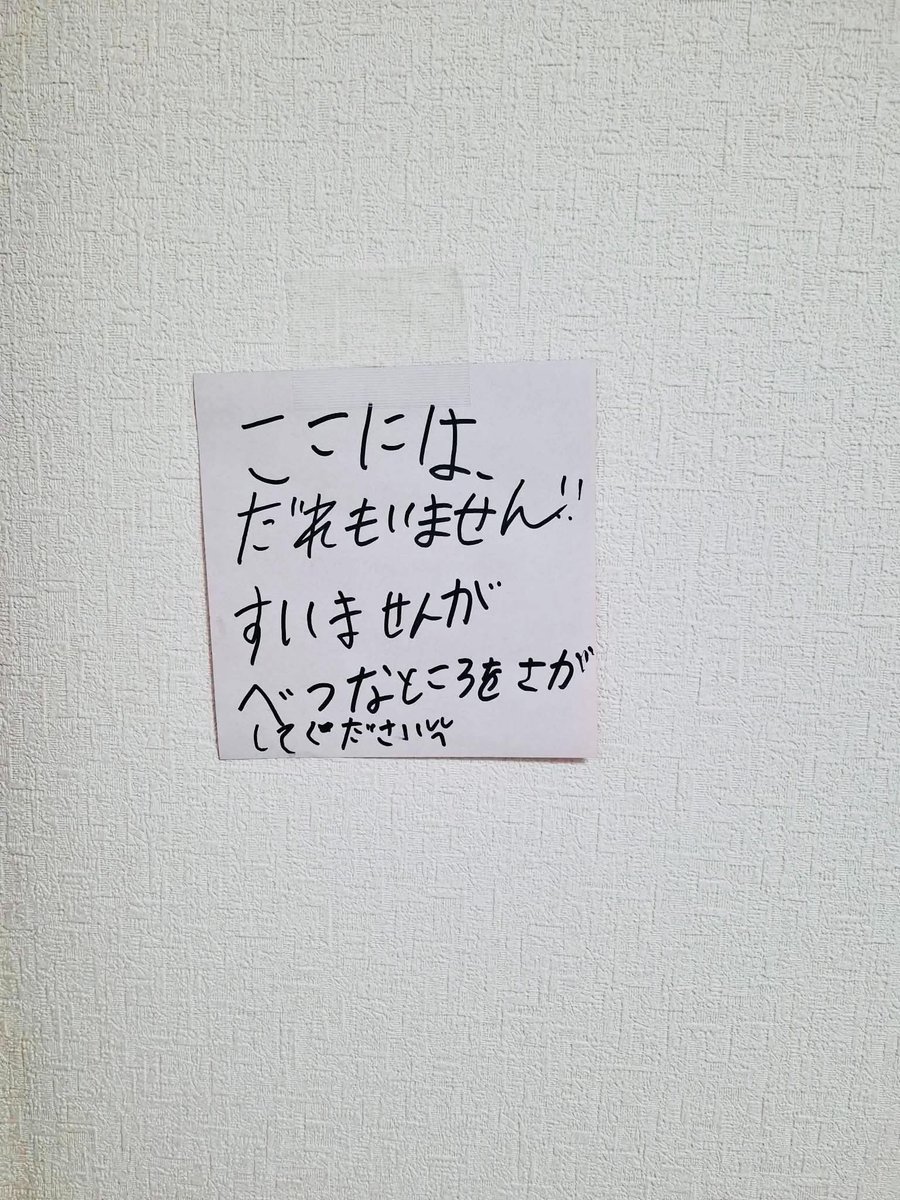 ここには、
だれもいません!!
すいませんが
べつなところをさが
してください